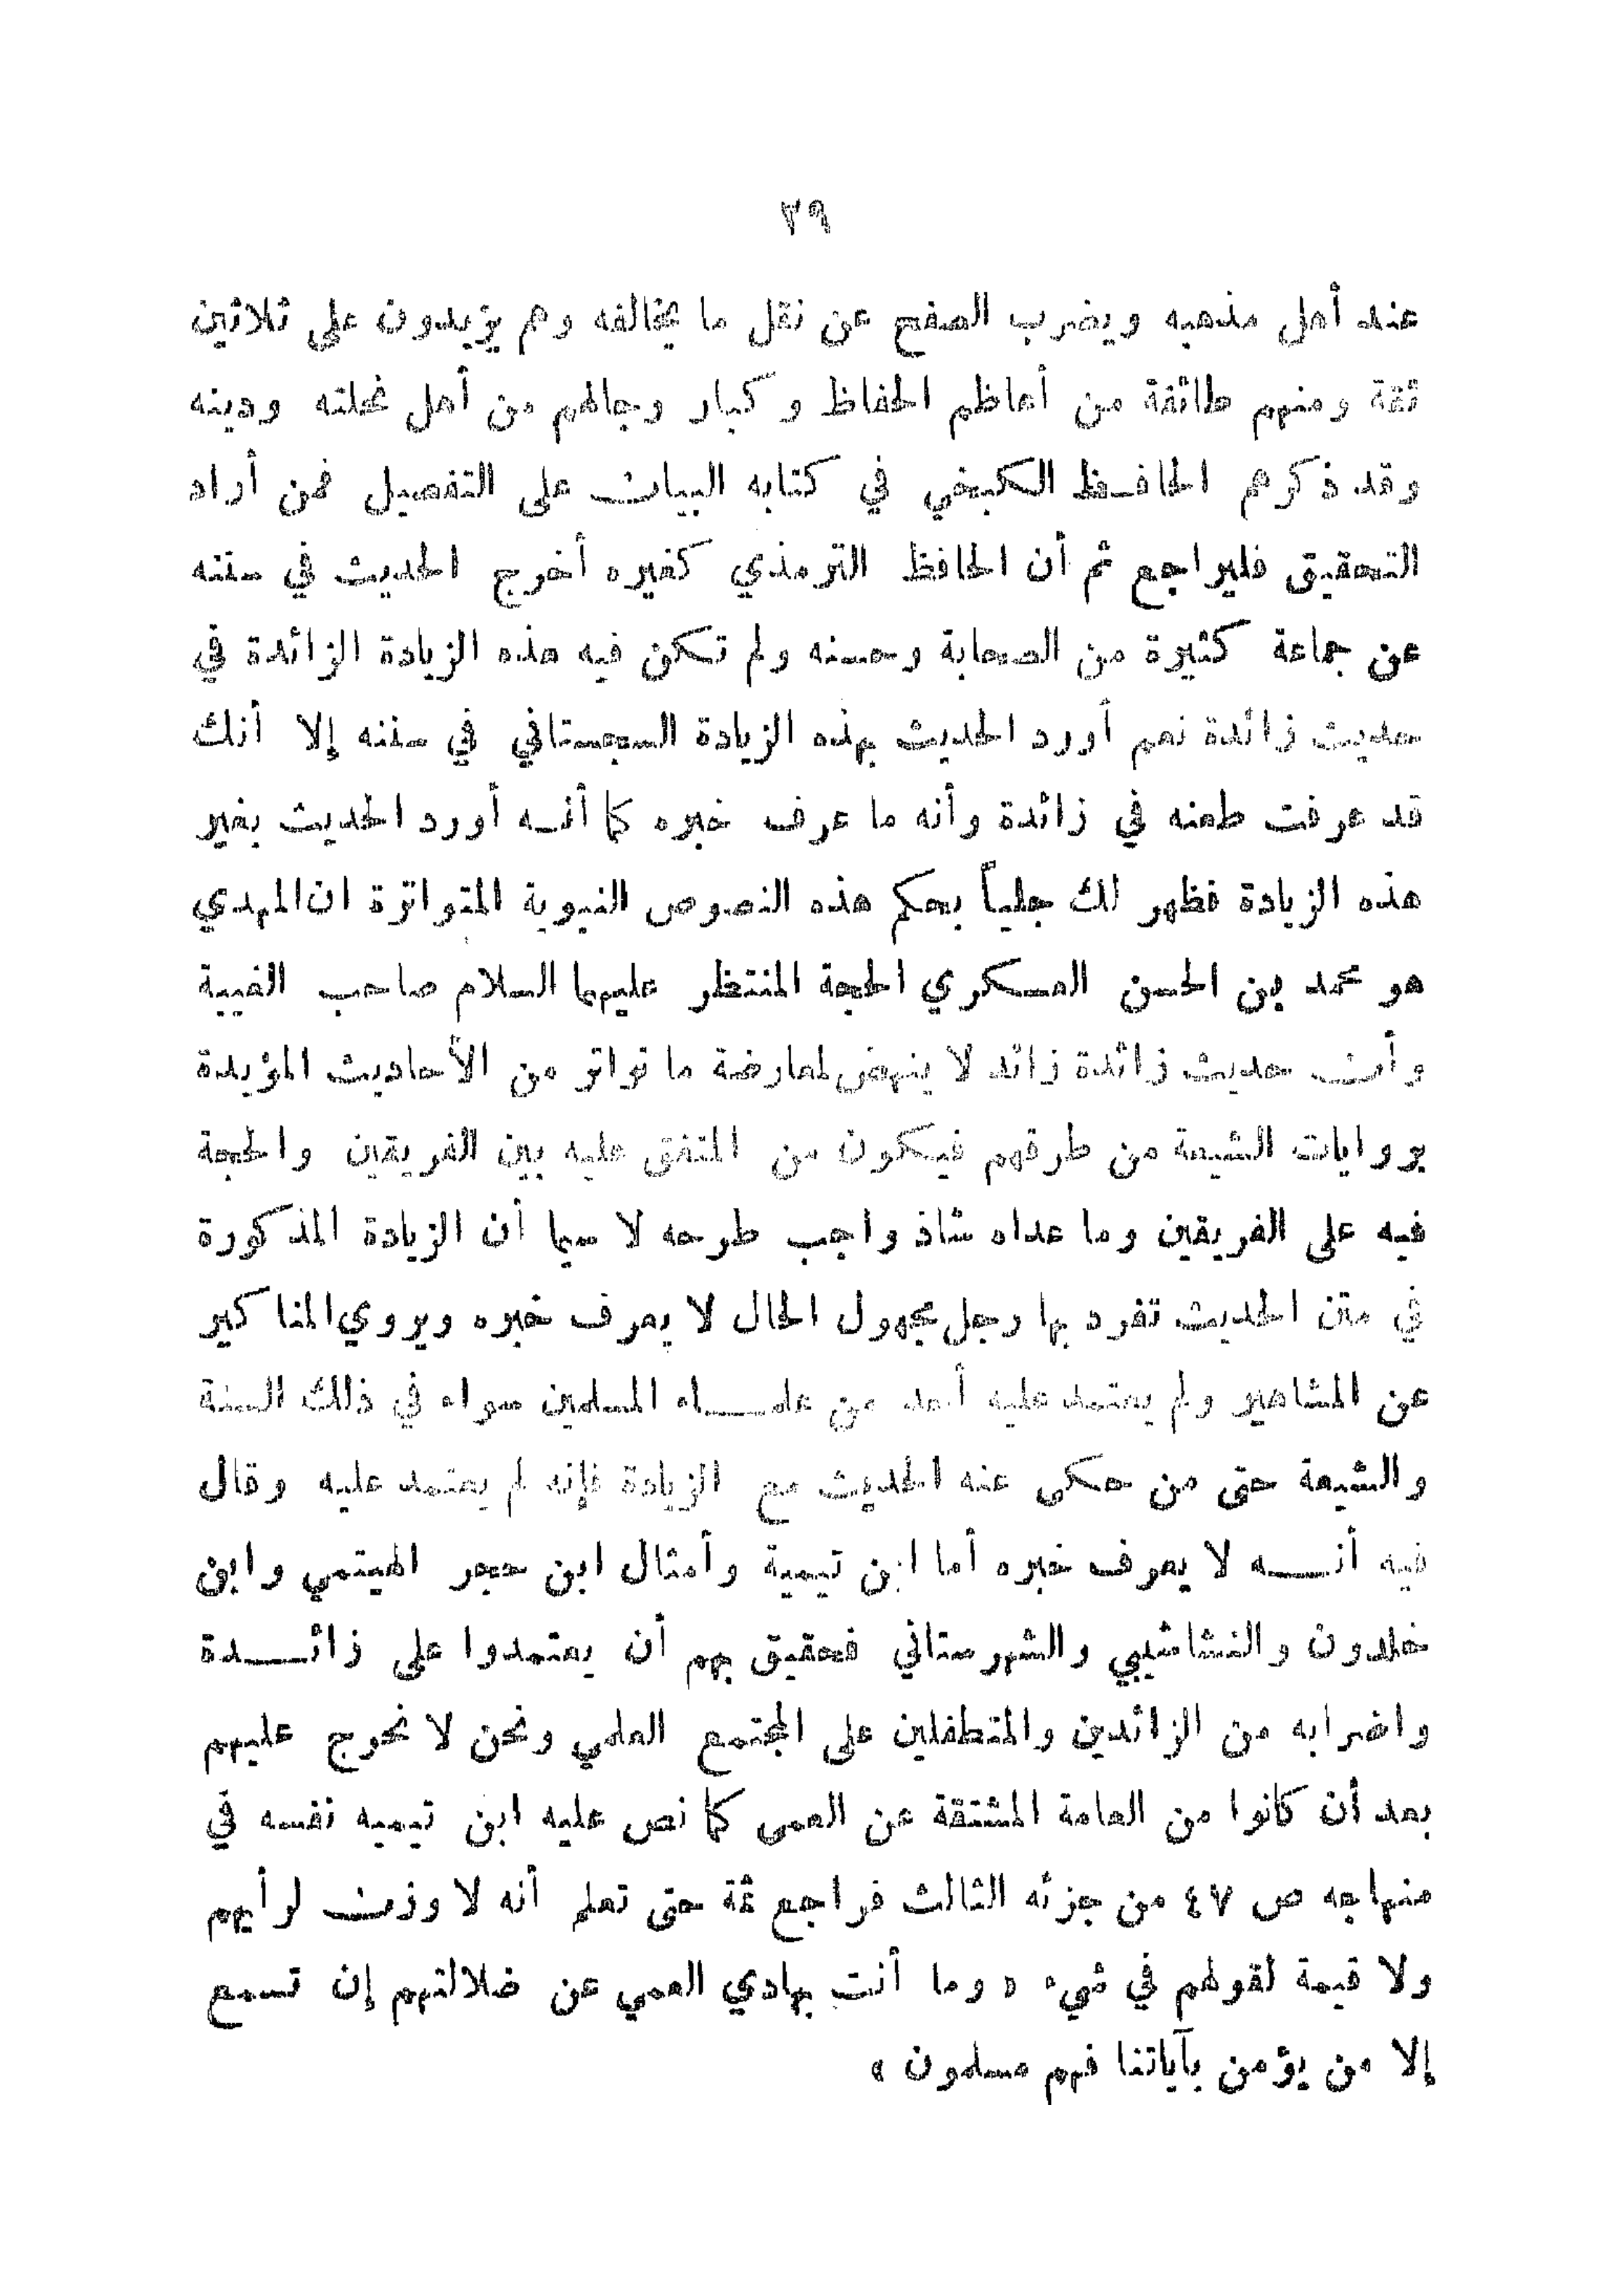 ٣٩
عند أهل مذهبه ويضرب الصفح عن نقل ما يخالفه وهم يزيدون على ثلاثين
ثقة ومنهم طائفة من أعاظم الحفاظ وكبار رجالهم من أهل نحلته ودينه
وقد ذكرهم الحافظ الكنجي في كتابه البيان على التفصيل فمن أراد
التحقيق فليراجع ثم أن الحافظ الترمذي كغيره أخرج الحديث في سننه
عن جماعة كثيرة من الصحابة وحسنه ولم تكن فيه هذه الزيادة الزائدة في
حديث زائدة نعم أورد الحديث بهذه الزيادة السجستاني في سننه إلا أنك
قد عرفت طعنه في زائدة وأنه ما عرف خبره كما أنه أورد الحديث بغير
هذه الزيادة فظهر لك جلياً بحكم هذه النصوص النبوية المتواترة ان المهدي
هو محمد بن الحسن العسكري الحجة المنتظر عليهما السلام صاحب الغيبة
وأن حديث زائدة زائد لا ينهض لمعارضة ما تواتر من الأحاديث المؤيدة
بروايات الشيعة من طرقهم فيكون من المتفق عليه بين الفريقين والحجة
فيه على الفريقين وما عداه شاذ واجب طرحه لا سيما أن الزيادة المذكورة
في متن الحديث تفرد بها رجل مجهول الحال لا يعرف خبره ويروي المناكير
عن المشاهير ولم يعتمد عليه أحد من علماء المسلمين سواء في ذلك السنة
والشيعة حتى من حكى عنه الحديث مع الزيادة فإنه لم يعتمد عليه وقال
فيه أنه لا يعرف خبره أما ابن تيمية وأمثال ابن حجر الهيتمي وابن
خلدون والنشاشيبي والشهرستاني فحقيق بهم أن يعتمدوا على زائدة
واضرابه من الزائدين والمتطفلين على المجتمع العلمي ونحن لا نحرج عليهم
بعد أن كانوا من العامة المشتقة عن العمى كما نص عليه ابن تيميه نفسه في
منهاجه ص ٤٧ من جزئه الثالث فراجع ثمة حتى تعلم أنه لا وزن لرأيهم
ولا قيمة لقولهم في شيء « وما أنت بهادي العمي عن ضلالتهم إن تسمع
إلا من يؤمن بآياتنا فهم مسلمون »